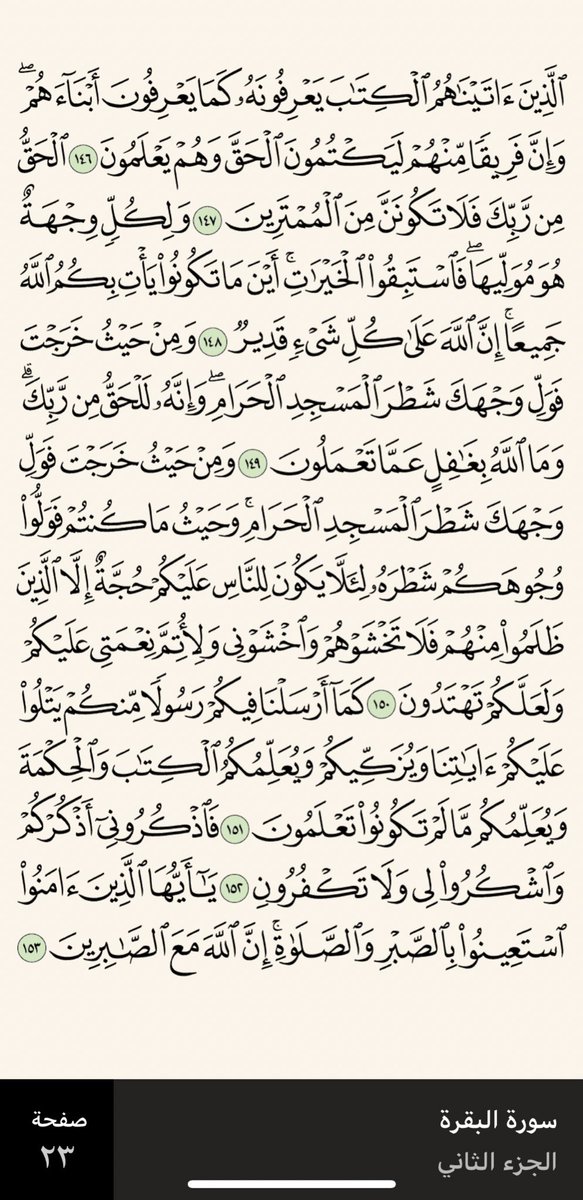 ٱلَّذِينَ ءَاتَيۡنَٰهُمُ ٱلۡكِتَٰبَ يَعۡرِفُونَهُۥ كَمَا يَعۡرِفُونَ أَبۡنَآءَهُمۡۖ
وَإِنَّ فَرِيقٗا مِّنۡهُمۡ لَيَكۡتُمُونَ ٱلۡحَقَّ وَهُمۡ يَعۡلَمُونَ ١٤٦ ٱلۡحَقُّ
مِن رَّبِّكَ فَلَا تَكُونَنَّ مِنَ ٱلۡمُمۡتَرِينَ ١٤٧ وَلِكُلّٖ وِجۡهَةٌ
هُوَ مُوَلِّيهَاۖ فَٱسۡتَبِقُواْ ٱلۡخَيۡرَٰتِۚ أَيۡنَ مَا تَكُونُواْ يَأۡتِ بِكُمُ ٱللَّهُ
جَمِيعًاۚ إِنَّ ٱللَّهَ عَلَىٰ كُلِّ شَيۡءٖ قَدِيرٞ ١٤٨ وَمِنۡ حَيۡثُ خَرَجۡتَ
فَوَلِّ وَجۡهَكَ شَطۡرَ ٱلۡمَسۡجِدِ ٱلۡحَرَامِۖ وَإِنَّهُۥ لَلۡحَقُّ مِن رَّبِّكَۗ
وَمَا ٱللَّهُ بِغَٰفِلٍ عَمَّا تَعۡمَلُونَ ١٤٩ وَمِنۡ حَيۡثُ خَرَجۡتَ فَوَلِّ
وَجۡهَكَ شَطۡرَ ٱلۡمَسۡجِدِ ٱلۡحَرَامِۚ وَحَيۡثُ مَا كُنتُمۡ فَوَلُّواْ
وُجُوهَكُمۡ شَطۡرَهُۥ لِئَلَّا يَكُونَ لِلنَّاسِ عَلَيۡكُمۡ حُجَّةٌ إِلَّا ٱلَّذِينَ
ظَلَمُواْ مِنۡهُمۡ فَلَا تَخۡشَوۡهُمۡ وَٱخۡشَوۡنِي وَلِأُتِمَّ نِعۡمَتِي عَلَيۡكُمۡ
وَلَعَلَّكُمۡ تَهۡتَدُونَ ١٥٠ كَمَآ أَرۡسَلۡنَا فِيكُمۡ رَسُولٗا مِّنكُمۡ يَتۡلُواْ
عَلَيۡكُمۡ ءَايَٰتِنَا وَيُزَكِّيكُمۡ وَيُعَلِّمُكُمُ ٱلۡكِتَٰبَ وَٱلۡحِكۡمَةَ
وَيُعَلِّمُكُم مَّا لَمۡ تَكُونُواْ تَعۡلَمُونَ ١٥١ فَٱذۡكُرُونِيٓ أَذۡكُرۡكُمۡ
وَٱشۡكُرُواْ لِي وَلَا تَكۡفُرُونِ ١٥٢ يَٰٓأَيُّهَا ٱلَّذِينَ ءَامَنُواْ
ٱسۡتَعِينُواْ بِٱلصَّبۡرِ وَٱلصَّلَوٰةِۚ إِنَّ ٱللَّهَ مَعَ ٱلصَّٰبِرِينَ ١٥٣
سورة البقرة
الجزء الثاني
صفحة
٢٣